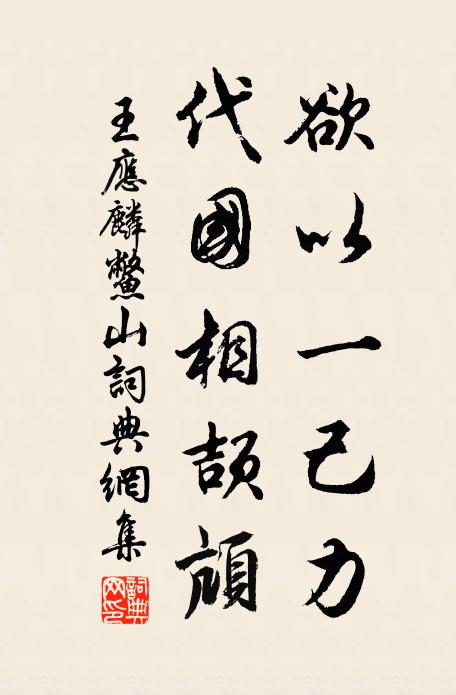 欲以一己力
代國相頡頏
王應麟鱉山詞典網集
詞典網印